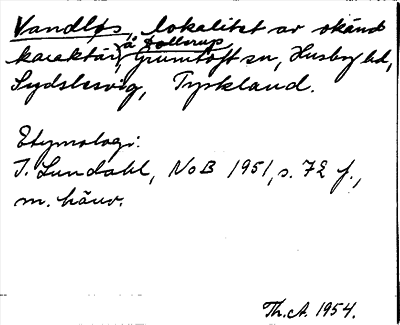 Vandløs, lokalitet av okänd
karaktär, å Dollerup, Grumtoft sn, Husby hd,
Sydslesvig, Tyskland.
Etymologi:
I. Lundahl, NoB 1951, s. 72 f.,
m. hänv.
Th. A. 1954.